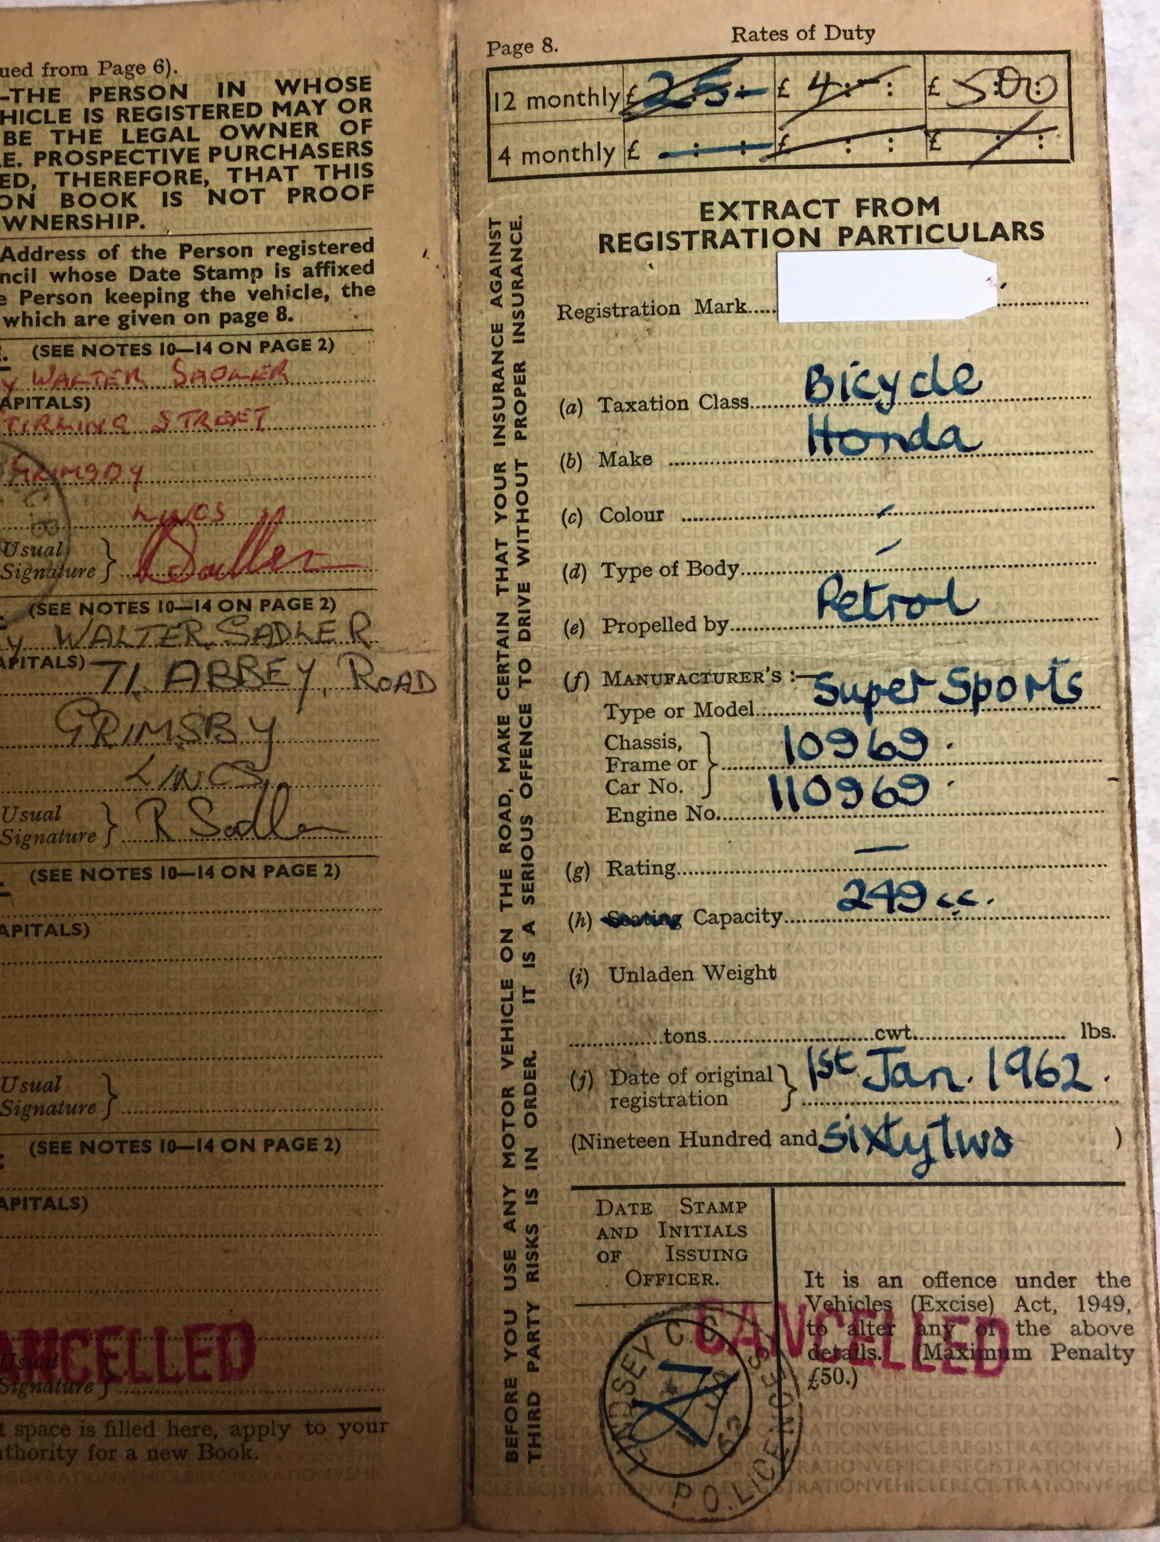 ued from Page 6).
—THE PERSON IN WHOSE
HICLE IS REGISTERED MAY OR
BE THE LEGAL OWNER OF
E. PROSPECTIVE PURCHASERS
ED, THEREFORE, THAT THIS
ON BOOK IS NOT PROOF
WNERSHIP.
Address of the Person registered
ncil whose Date Stamp is affixed
e Person keeping the vehicle, the
which are given on page 8.
(SEE NOTES 10—14 ON PAGE 2)
Y WALTER SADLER
APITALS)
TIRLING STREET
GRIMSBY
LINCS
Usual
Signature } R Sadler
(SEE NOTES 10—14 ON PAGE 2)
Y WALTER SADLER
APITALS) 71 ABBEY ROAD
GRIMSBY
LINCS
Usual
Signature } R Sadler
(SEE NOTES 10—14 ON PAGE 2)
APITALS)
Usual
Signature }
(SEE NOTES 10—14 ON PAGE 2)
APITALS)
ANCELLED
Usual
Signature }
t space is filled here, apply to your
uthority for a new Book.
BEFORE YOU USE ANY MOTOR VEHICLE ON THE ROAD, MAKE CERTAIN THAT YOUR INSURANCE AGAINST
THIRD PARTY RISKS IS IN ORDER. IT IS A SERIOUS OFFENCE TO DRIVE WITHOUT PROPER INSURANCE.
Page 8. Rates of Duty
12 monthly £ 2:5:- £ 4: : £ 5:00
4 monthly £ : : £ : : £ : :
EXTRACT FROM
REGISTRATION PARTICULARS
Registration Mark
(a) Taxation Class Bicycle
(b) Make Honda
(c) Colour -
(d) Type of Body -
(e) Propelled by Petrol
(f) MANUFACTURER'S :—
Type or Model Super Sports
Chassis,
Frame or } 10969.
Car No.
Engine No. 110969.
(g) Rating —
(h) Seating Capacity 249 c.c.
(i) Unladen Weight
tons cwt. lbs.
(j) Date of original } 1st Jan. 1962.
registration
(Nineteen Hundred and sixty two )
DATE STAMP
AND INITIALS
OF ISSUING
OFFICER.
It is an offence under the
Vehicles (Excise) Act, 1949,
to alter any of the above
details. (Maximum Penalty
£50.)
CANCELLED
LINDSEY C.C.
JAN 62